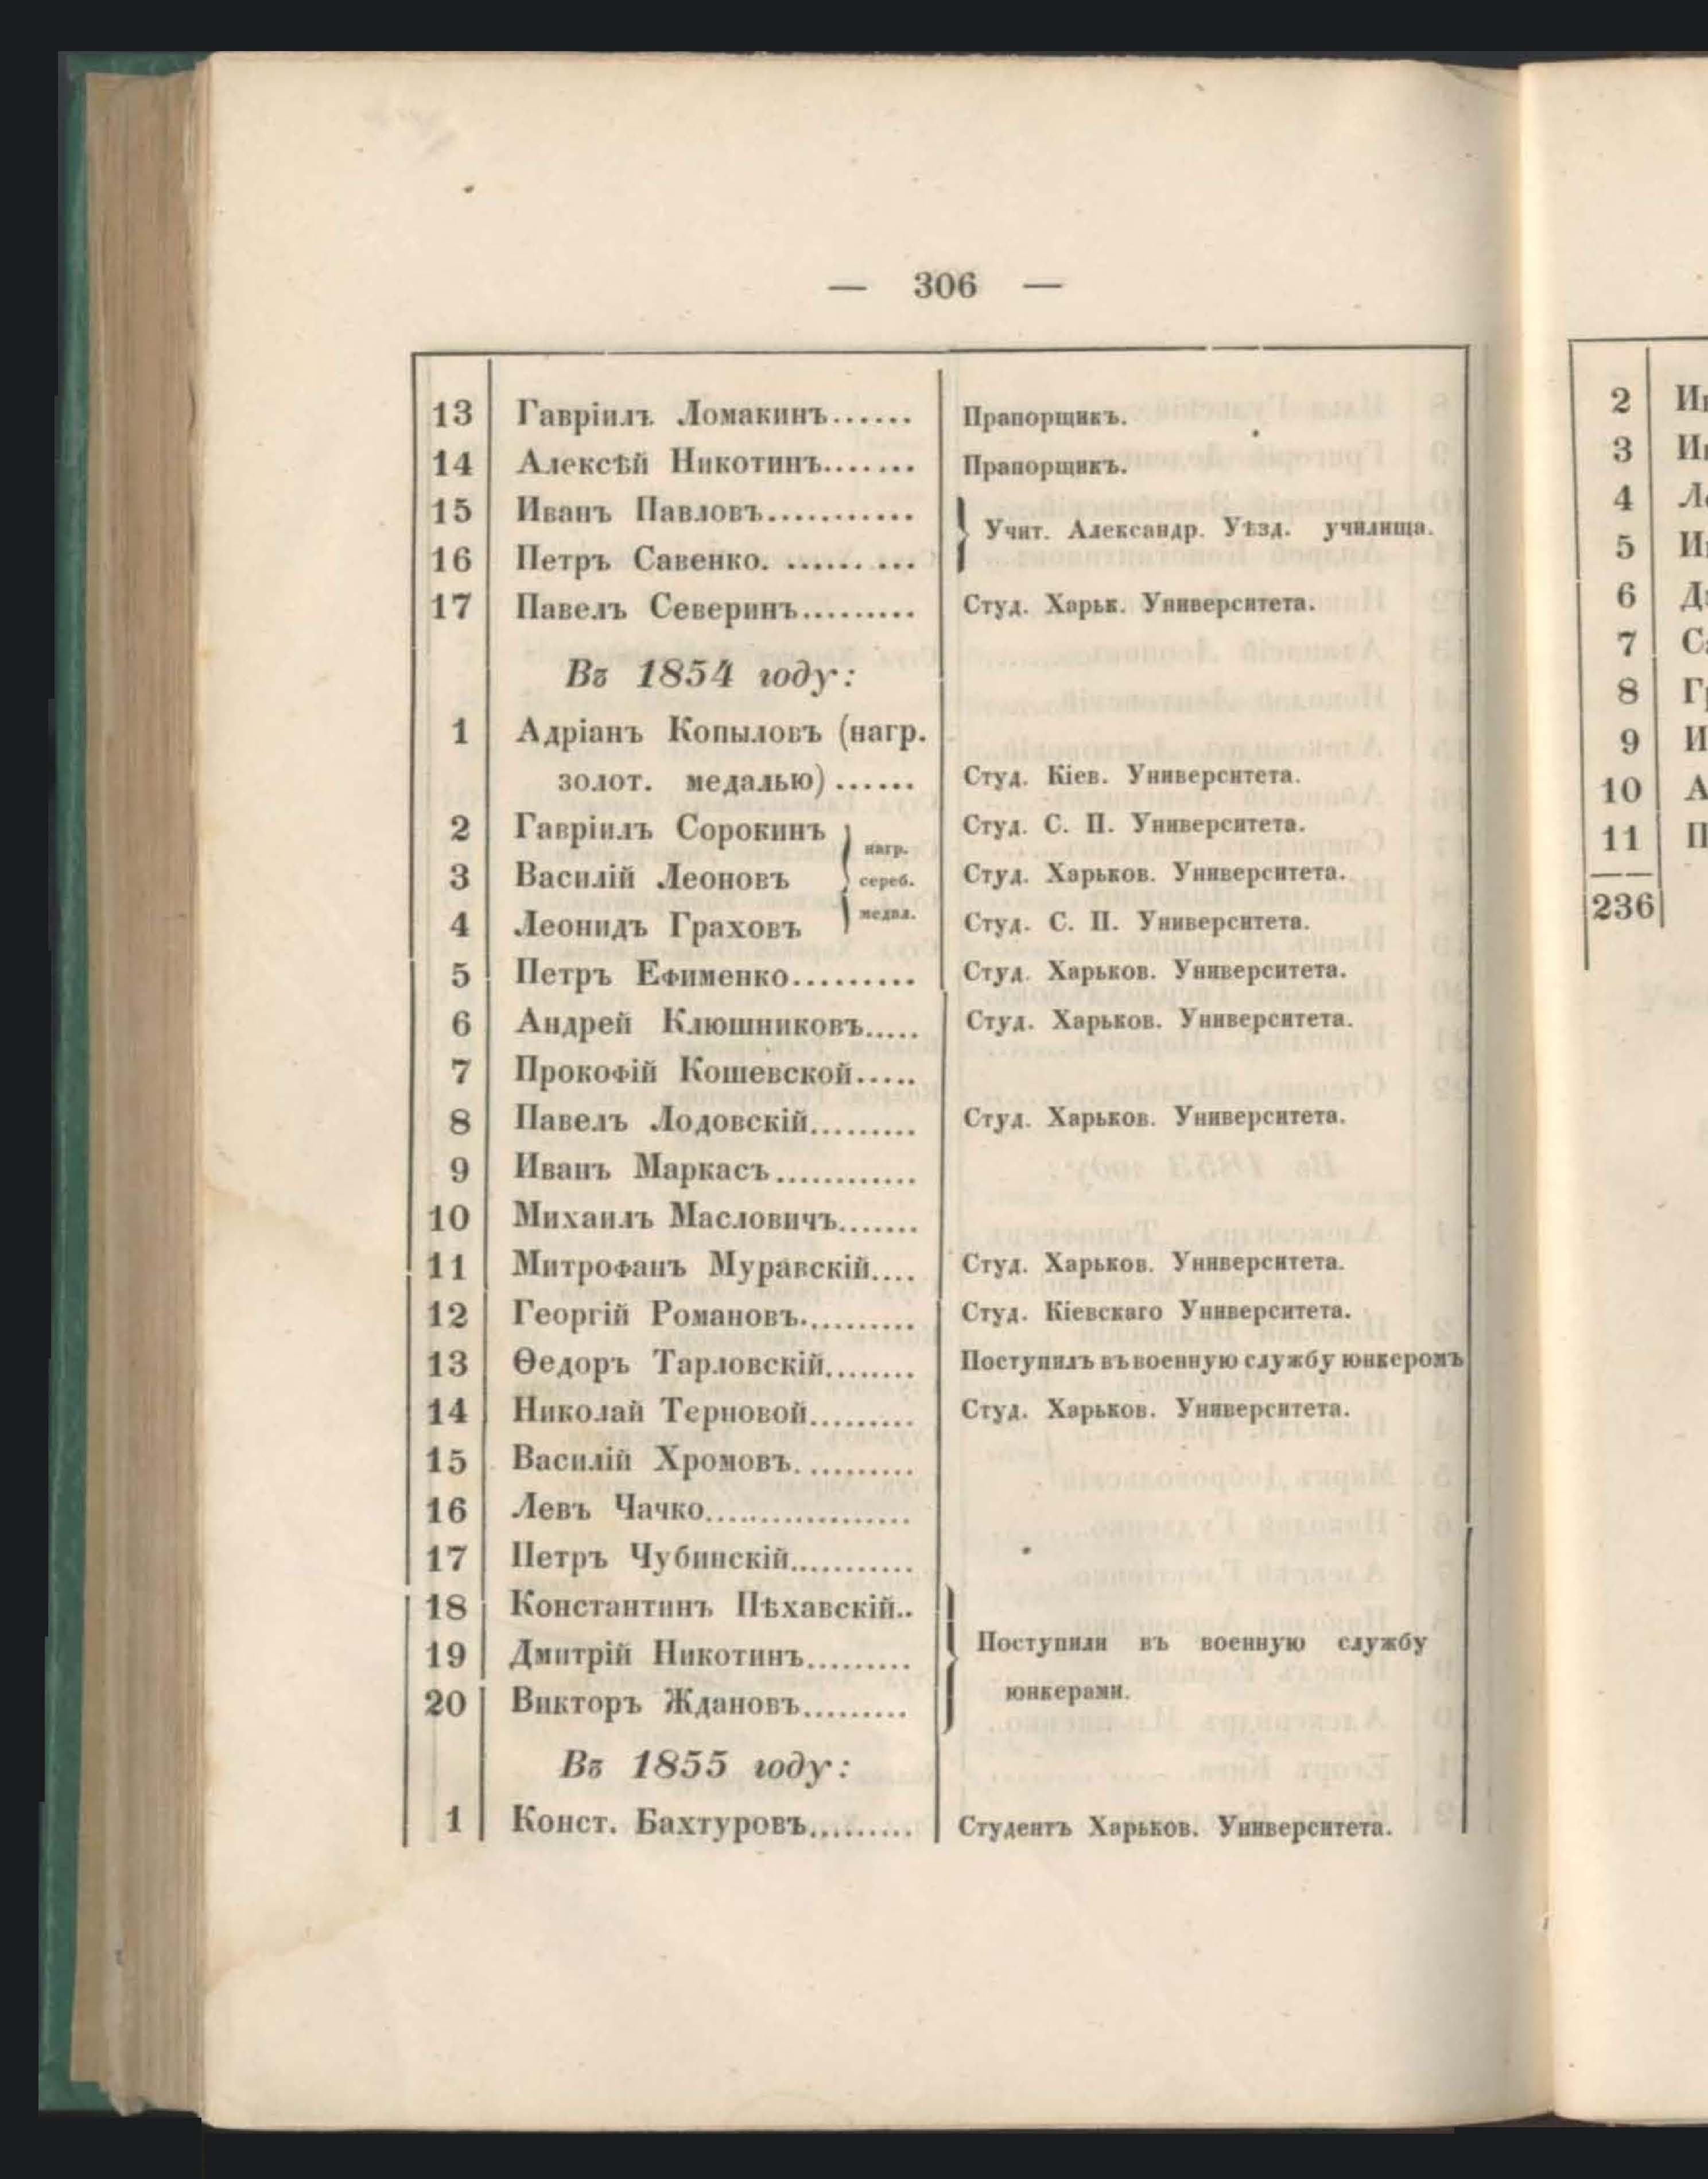 — 306 —
13 Гавріилъ Ломакинъ...... Прапорщикъ.
14 Алексѣй Никотинъ....... Прапорщикъ.
15 Иванъ Павловъ...........
Учит. Александр. Уѣзд. училища.
16 Петръ Савенко. .........
17 Павелъ Северинъ......... Студ. Харьк. Университета.
Въ 1854 году:
1 Адріанъ Копыловъ (нагр.
золот. медалью) ...... Студ. Кіев. Университета.
2 Гавріилъ Сорокинъ нагр. Студ. С. П. Университета.
3 Василій Леоновъ сереб. Студ. Харьков. Университета.
4 Леонидъ Граховъ медал. Студ. С. П. Университета.
5 Петръ Ефименко......... Студ. Харьков. Университета.
6 Андрей Клюшниковъ..... Студ. Харьков. Университета.
7 Прокофій Кошевской.....
8 Павелъ Лодовскій......... Студ. Харьков. Университета.
9 Иванъ Маркасъ............
10 Михаилъ Масловичъ.......
11 Митрофанъ Муравскій.... Студ. Харьков. Университета.
12 Георгій Романовъ.......... Студ. Кіевскаго Университета.
13 Ѳедоръ Тарловскій........ Поступилъ въ военную службу юнкеромъ
14 Николай Терновой......... Студ. Харьков. Университета.
15 Василій Хромовъ. ..........
16 Левъ Чачко...................
17 Петръ Чубинскій............
18 Константинъ Пѣхавскій..
19 Дмитрій Никотинъ......... Поступили въ военную службу
20 Викторъ Ждановъ......... юнкерами.
Въ 1855 году:
1 Конст. Бахтуровъ......... Студентъ Харьков. Университета.
2
3
4
5
6
7
8
9
10
11
236